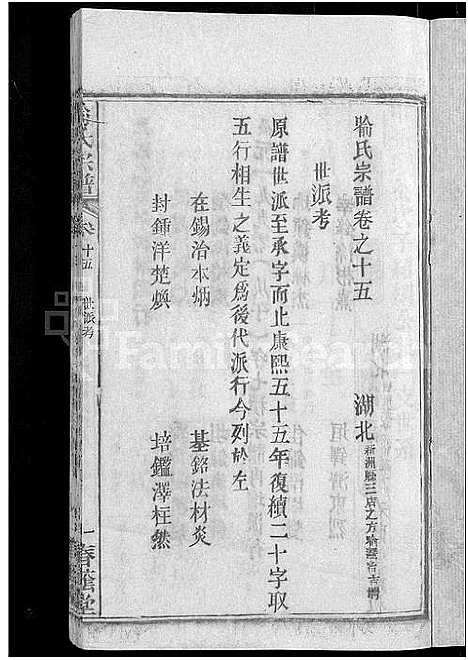 喻氏宗譜卷之十五
湖北
世派考
原譜世派至承字而止康熙五十五年復續二十字取
五行相生之義定爲後代派行今列於左
在錫治本炳
基銘法材炎
封鍾洋楚煥
培鑑澤枉然
氏宗譜
十五
世派考
一
春蔭堂
FamilySearch